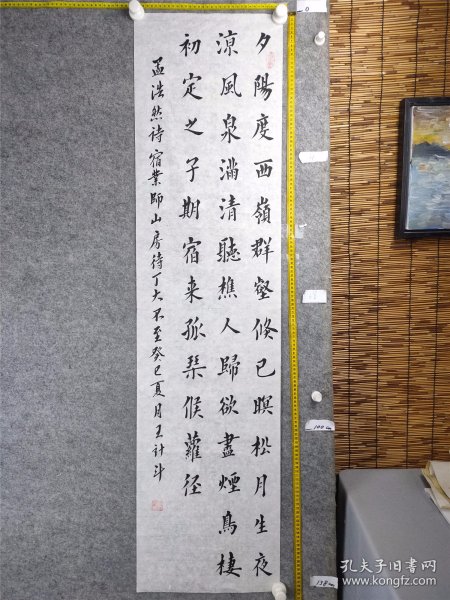 夕陽度西嶺群壑倏已暝松月生夜
涼風泉滿清聽樵人歸欲盡煙鳥棲
初定之子期宿来孤琴候蘿径
孟浩然诗宿業師山房待丁大不至癸巳夏月王计斗
0
100 cm
138 cm
孔夫子旧书网
www.kongfz.com